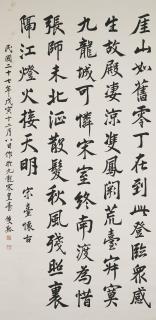 厓山如舊零丁在到此登臨眾感
生故殿淒涼雙鳳闕荒臺寂寞
九龍城可憐宋室終南渡為惜
張師未北征散髮秋風殘照裏
隔江燈火接天明 宋臺懷古
民國二十七年戊寅十二月八日作於九龍宋皇臺